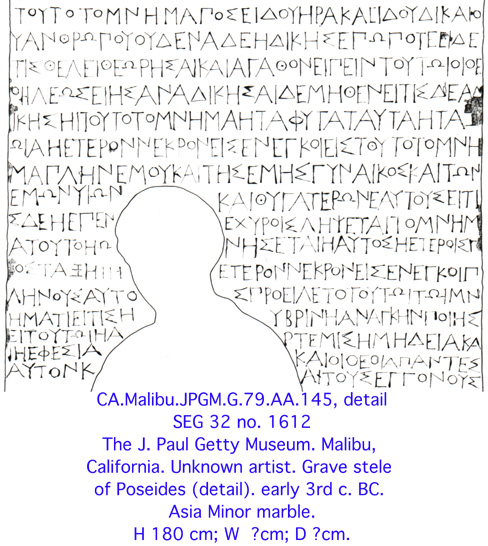 ΤΟΥΤΟΤΟΜΝΗΜΑΠΟΣΕΙΔΟΥΗΡΑΚΛΕΙΔΟΥΔΙΚΑΙΟ
ΥΑΝΘΡΩΠΟΥΟΥΔΕΝΑΔΕΗΔΙΚΗΣΕΠΩΠΟΤΕΕΙΔΕ
ΤΙΣΘΕΛΕΙΘΕΩΡΗΣΑΙΚΑΙΑΓΑΘΟΝΕΙΠΕΙΝΤΟΥΤΩΙΟΙΘΕ
ΟΙΙΛΕΩΣΕΙΗΣΑΝΑΔΙΚΗΣΑΙΔΕΜΗΘΕΝΕΙΤΙΣΔΕΑΔ
ΙΚΗΣΗΙΤΟΥΤΟΤΟΜΝΗΜΑΗΤΑΦΥΤΑΤΑΥΤΑΗΤΑ
ΩΙΑΗΕΤΕΡΟΝΝΕΚΡΟΝΕΙΣΕΝΕΓΚΟΙΕΙΣΤΟΥΤΟΤΟΜΝΗ
ΜΑΠΛΗΝΕΜΟΥΚΑΙΤΗΣΕΜΗΣΓΥΝΑΙΚΟΣΚΑΙΤΩΝ
ΕΜΩΝΥΙΩΝ ΚΑΙΘΥΓΑΤΕΡΩΝΕΑΥΤΟΥΣΕΙΤΙ
ΣΔΕΗΕΠΕΝ ΕΧΥΡΟΙΣΛΗΨΕΤΑΙΤΟΜΝΗΜ
ΑΤΟΥΤΟΗΩ ΝΗΣΕΤΑΙΗΑΥΤΟΣΗΕΤΕΡΟΙΣΠ
ΟΣΤΑΞΗΙΗ ΕΤΕΡΟΝΝΕΚΡΟΝΕΙΣΕΝΕΓΚΟΙΠ
ΛΗΝΟΥΣΑΥΤΟ ΣΠΡΟΕΙΛΕΤΟΤΟΥΤΩΙΤΩΙΜΝ
ΗΜΑΤΙΕΙΤΙΣΗ ΥΒΡΙΝΗΑΝΑΓΚΗΝΠΟΙΗΣ
ΕΙΤΟΥΤΩΙΗΑ ΡΤΕΜΙΣΗΜΗΔΕΙΑΚΑ
ΙΗΕΦΕΣΙΑ ΚΑΙΟΙΘΕΟΙΑΠΑΝΤΕΣ
ΑΥΤΟΝΚ ΑΙΤΟΥΣΕΓΓΟΝΟΥΣ
CA.Malibu.JPGM.G.79.AA.145, detail
SEG 32 no. 1612
The J. Paul Getty Museum. Malibu,
California. Unknown artist. Grave stele
of Poseides (detail). early 3rd c. BC.
Asia Minor marble.
H 180 cm; W ?cm; D ?cm.